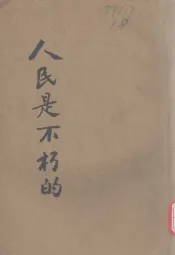 人民是不朽的